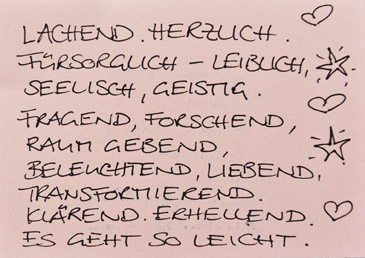 LACHEND. HERZLICH.
FÜRSORGLICH – LEIBLICH,
SEELISCH, GEISTIG.
FRAGEND, FORSCHEND,
RAUM GEBEND,
BELEUCHTEND, LIEBEND,
TRANSFORMIEREND.
KLÄREND. ERHELLEND.
ES GEHT SO LEICHT.